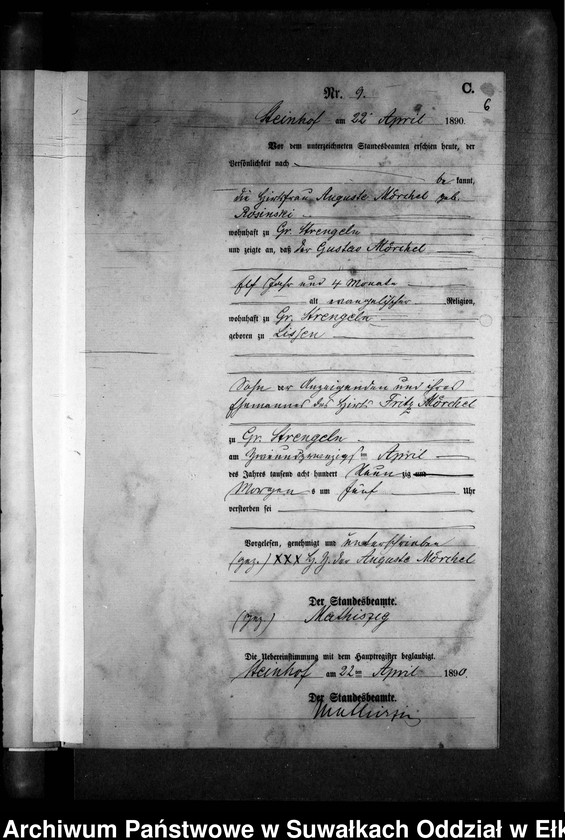 C.
6
Nr. 9.
Steinhof am 22 April 1890.
Vor dem unterzeichneten Standesbeamten erschien heute, der
Persönlichkeit nach
be kannt,
die Hirtfrau Auguste Mörchel geb.
Rosinski
wohnhaft zu Gr. Strengeln
und zeigte an, daß der Gustav Mörchel
elf Jahr und 4 Monate
alt evangelischer Religion,
wohnhaft zu Gr. Strengeln
geboren zu Lissen
Sohn der Anzeigenden und ihres
Ehemannes des Hirt Fritz Mörchel
zu Gr. Strengeln
am Zweiundzwanzigsten April
des Jahres tausend acht hundert Neun zig und
Morgens um fünf Uhr
verstorben sei
Vorgelesen, genehmigt und unterschrieben
(gez.) XXX H. Z. der Auguste Mörchel
Der Standesbeamte.
(gez.) Mathiszig
Die Uebereinstimmung mit dem Hauptregister beglaubigt.
Steinhof am 22ten April 1890.
Der Standesbeamte.
Mathiszig
Archiwum Państwowe w Suwałkach Oddział w Ełk